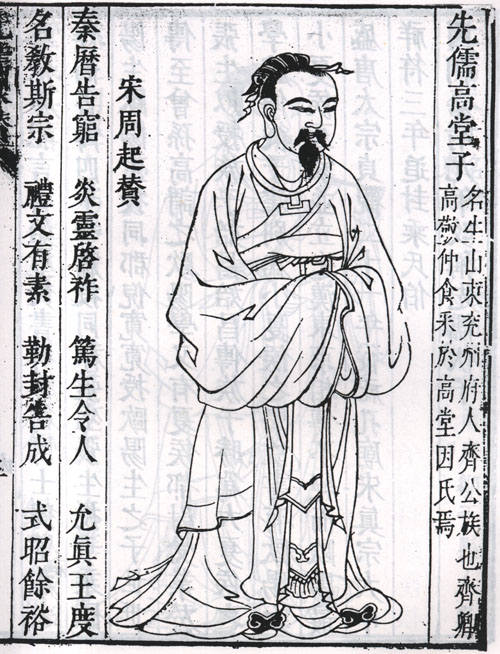 先儒高堂子
名生山東兗州府人齊公族也齊卿
高敬仲食采於高堂因氏焉
宋周起贊
秦曆告窮 炎靈啓祚 篤生令人 允眞王度
名敎斯宗 禮文有素 勒封告成 式昭餘裕